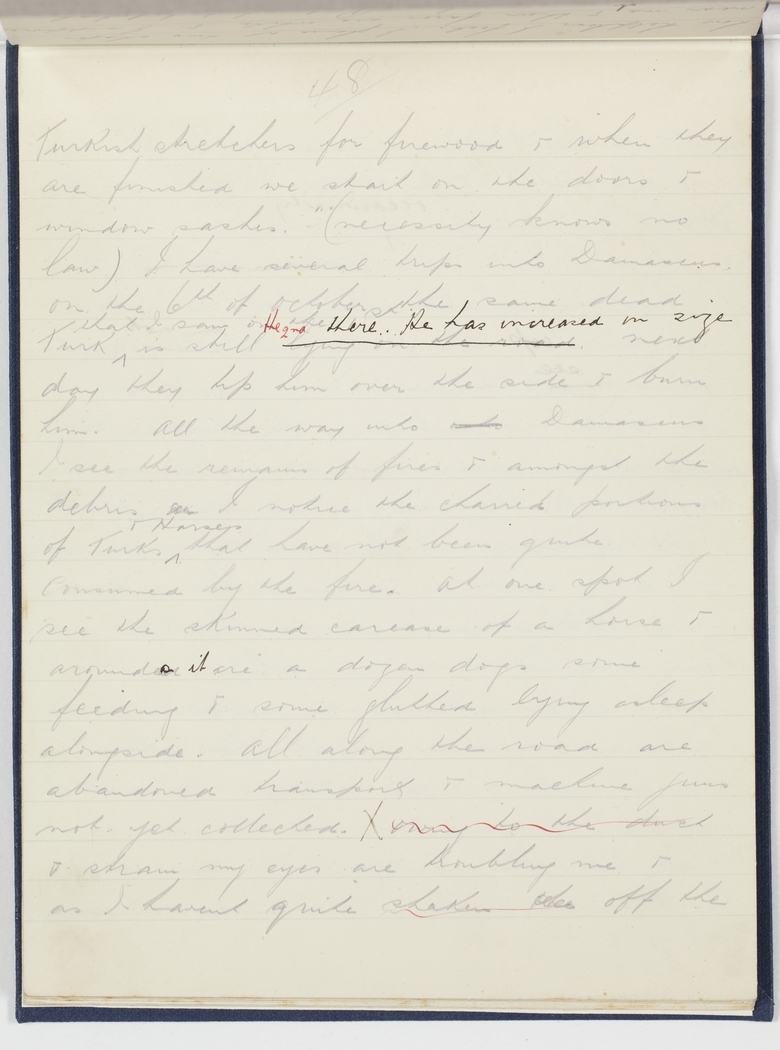 48
Turkish stretchers for firewood & when they
are finished we start on the doors &
window sashes. "(necessity knows no
law) I have several trips into Damascus.
on the 6th of october the same dead
that I saw on the 2nd there.. He has increased in size
Turk is still lying on the road. next
day they tip him over the side & burn
him. All the way into into Damascus
I see the remains of fires & amongst the
debris I notice the charred portions
& Horses
of Turks that have not been quite
consumed by the fire. At one spot I
see the skinned carcase of a horse &
around it are a dozen dogs some
feeding & some glutted lying asleep
alongside. All along the road are
abandoned transport & machine guns
not yet collected. X owing to the dust
& strain my eyes are troubling me &
as I havent quite shaken off the